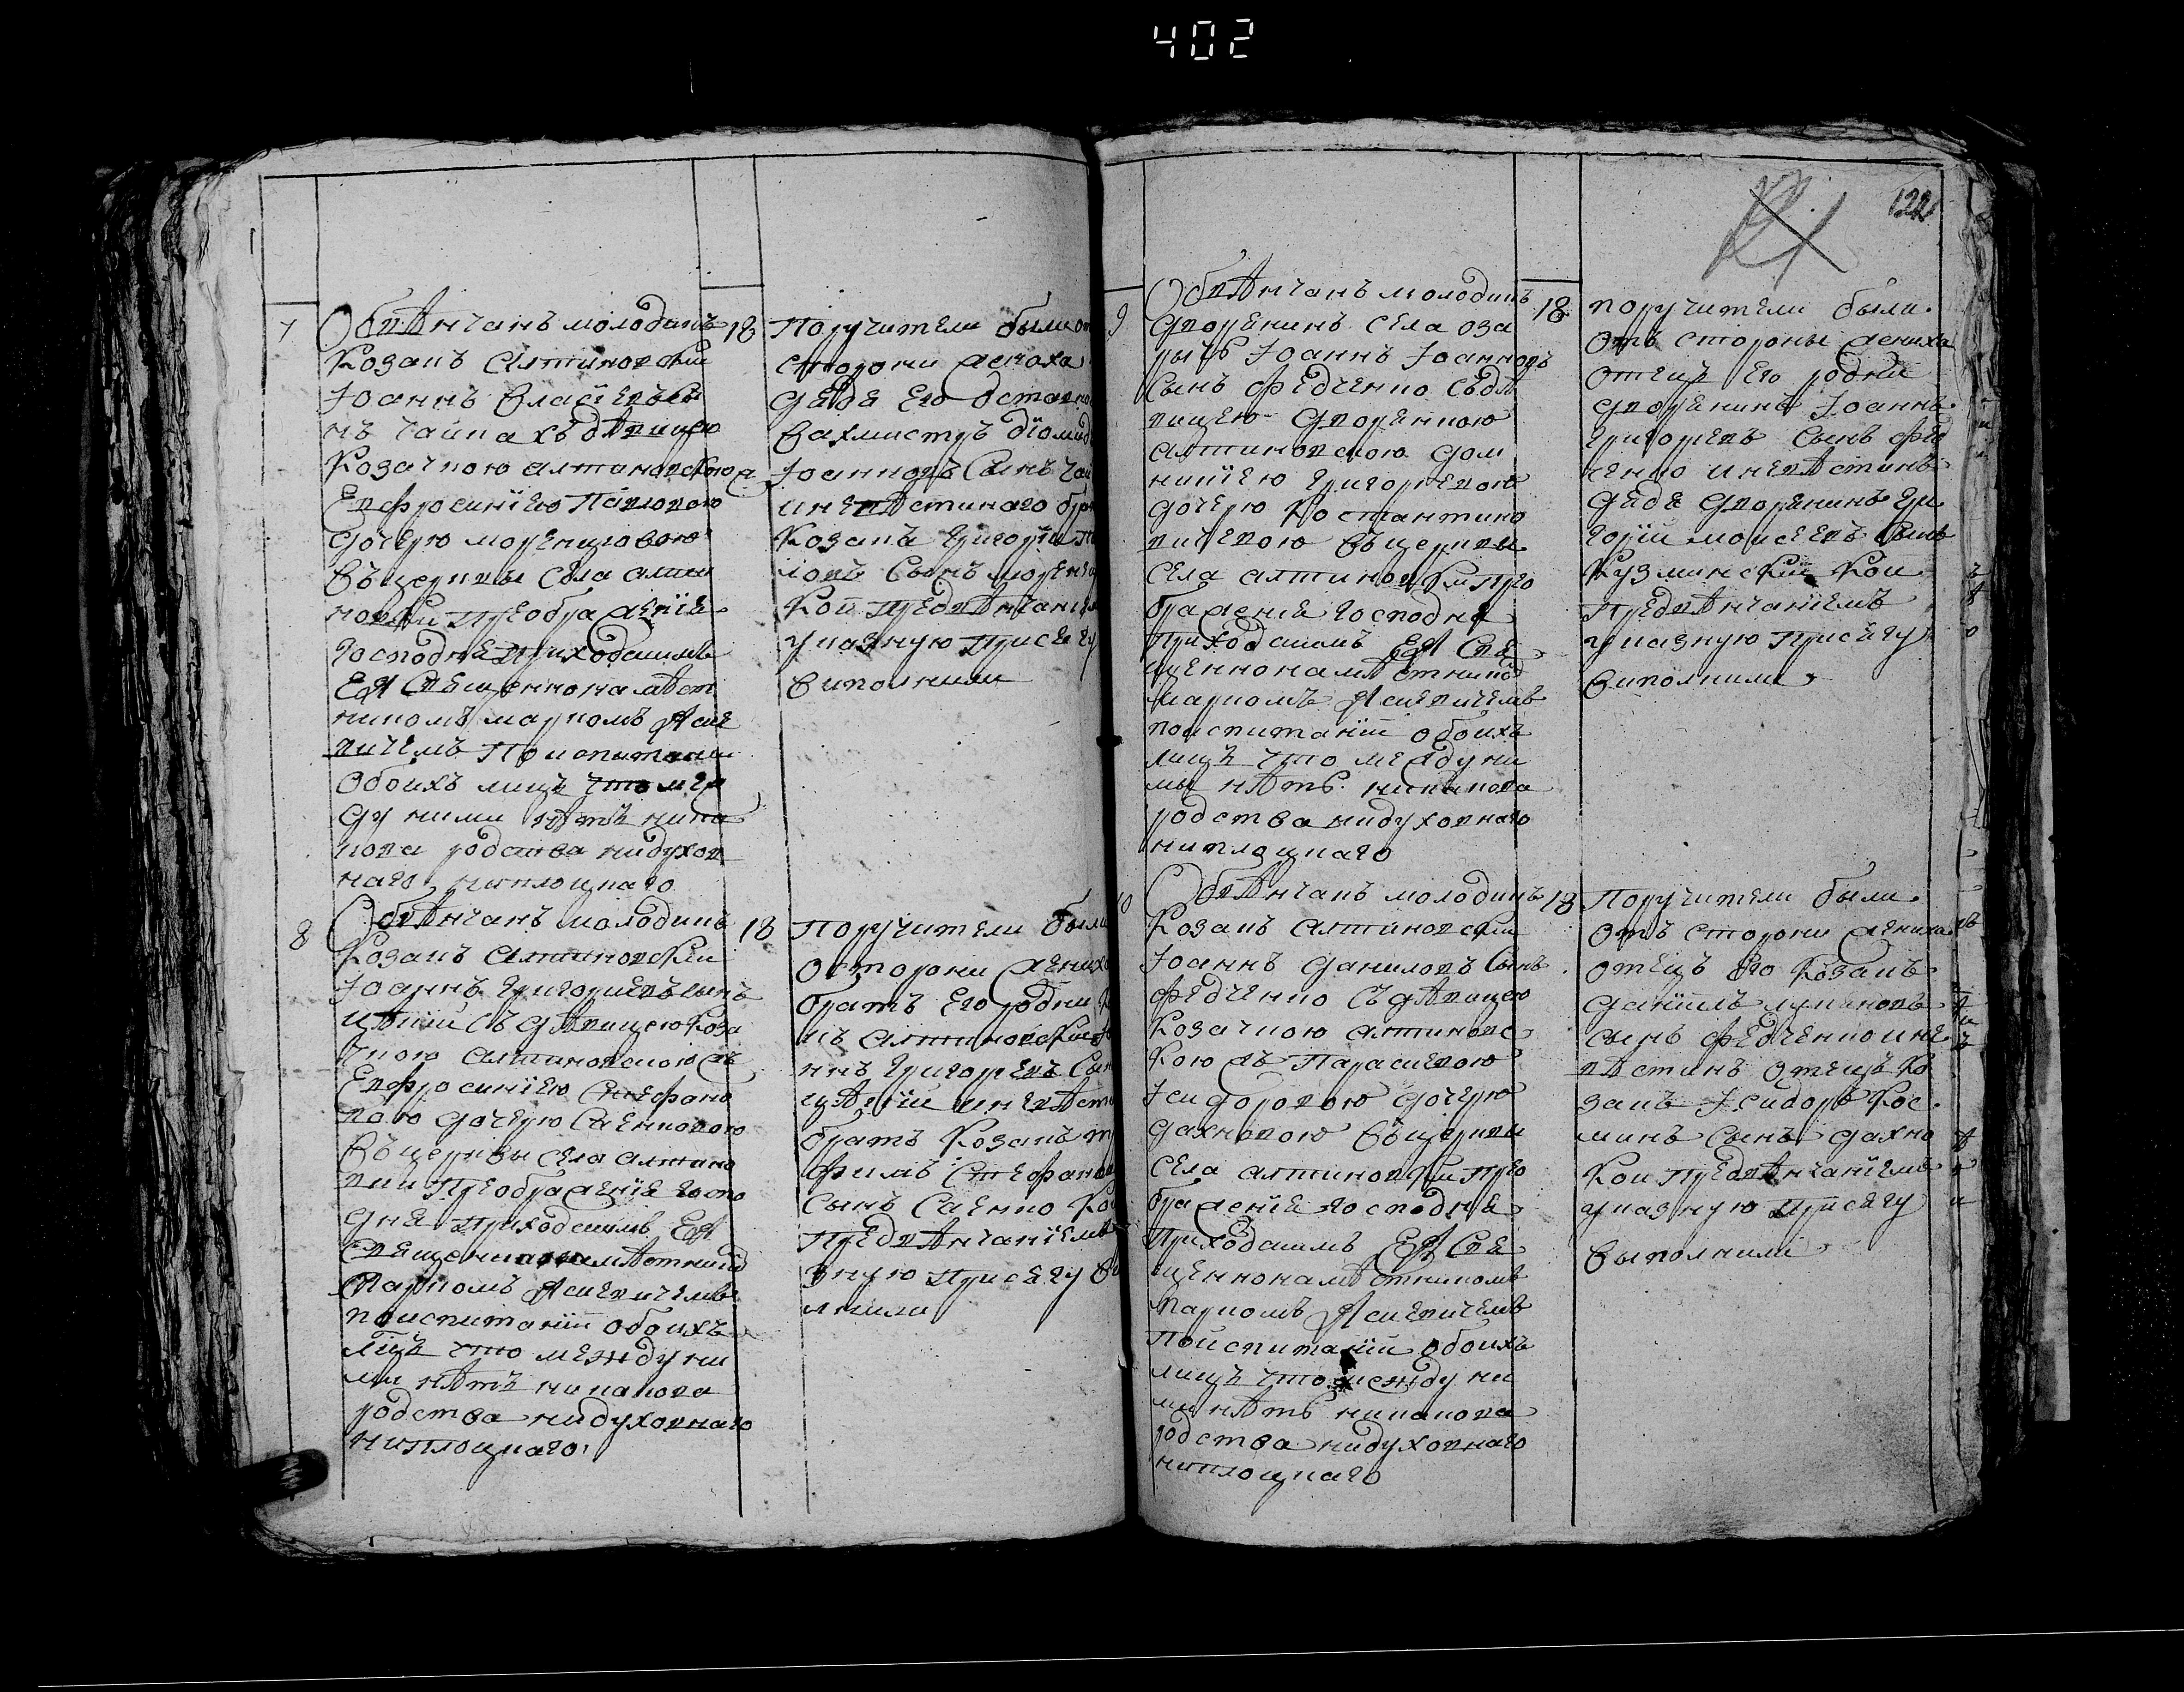 402
122
7
Обвѣнчанъ молодикъ
козакъ алтиновский
Иоаннъ Власиевъ сы
нъ Чайка зъ дѣвицею
козачкою алтиновскою
Евфросиниею Павловою
дочерю Моренцовою
въ церкви села алти
новки преображения
господня приходскимъ
Ея священнонамѣст
никомъ Маркомъ Яске
вичемъ по испитании
обоихъ лицъ что меж
ду ними нѣтъ ника
кова родства ни духов
наго ни плоцкаго
18
поручители были от
сторони жениха
дядя его отставно
вахмистръ Диомид
Иоанновъ сынъ Чай
и невѣстинаго бра
козакъ Григорий Па
ловъ сынъ Морен
кои предвѣнчание
указную присягу
виполнили
8
Обвѣнчанъ молодикъ
козакъ алтиновский
Иоаннъ Григориевъ сынъ
съ дѣвицею коза
чкою алтиновскою
Евфросиниею Стефано
вою дочерю Саенковою
въ церкви села алтино
вки преображения госпо
дня приходскимъ Ея
священнонамѣстником
Маркомъ Яскевичемъ
по испитании обоихъ
лицъ что между ни
ми нѣтъ никакова
родства ни духовнаго
ни плоцкаго
18
поручители были
от сторони жених
братъ его родни
къ алтиновский
ннъ Григоревъ сын
и невѣсти
братъ козакъ
Стефанов
сынъ Саенко ко
предвѣнчаниемъ
зную присягу ви
лнили
9
Обвѣнчанъ молодикъ
дворянинъ села оза
ричъ Иоаннъ Иоанновъ
сынъ Федченко съ дѣ
вицею дворянкою
алтиновскою Дом
никиею Григоревою
дочерю Костантино
вичевою въ церкви
села алтиновки прео
бражения господня
приходскимъ Ея свя
щеннонамѣстником
Маркомъ Яскевичемъ
по испитании обоихъ
лицъ что между ни
ми нѣтъ никакова
родства ни духовнаго
ни плоцкаго
18
поручители были
отъ стороны жениха
отецъ его родни
дворянинъ Иоаннъ
Григоревъ сынъ Фед
ченко и невѣстинъ
дядя дворянинъ Гри
горий Моисеевъ сынъ
Кузминский кои
предвѣнчаниемъ
указную присягу
виполнили
10
Обвѣнчанъ молодикъ
козакъ алтиновский
Иоаннъ Даниловъ сынъ
Федченко съ дѣвицею
козачкою алтиновс
кою зъ Параскевою
Исидоровою дочерю
Дахновою въ церкви
села алтиновки прео
бражения господня
приходскимъ Ея свя
щеннонамѣстникомъ
Маркомъ Яскевичемъ
по испитании обоихъ
лицъ что между ни
ми нѣтъ никакова
родства ни духовнаго
ни плоцкаго
18
поручители были
отъ сторони жениха
отецъ его козакъ
Даниилъ Лукиновъ
сынъ Федченко и не
вѣстинъ отецъ ко
закъ Исидоръ Кос
минъ сынъ Дахно
кои предвѣнчаниемъ
указную присягу
выполнили